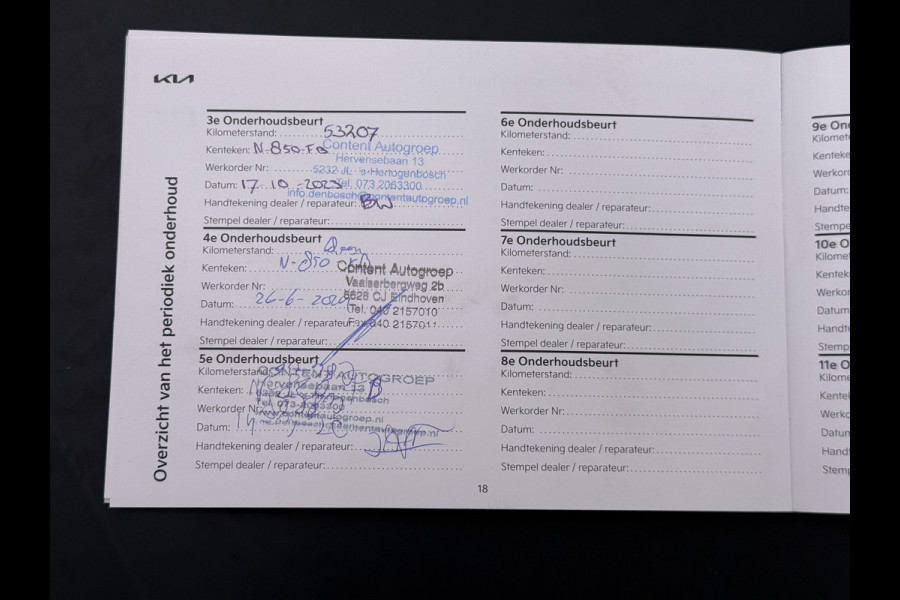 KIA
Overzicht van het periodiek onderhoud
3e Onderhoudsbeurt
Kilometerstand: 53207
Kenteken: N-850-FB
Werkorder Nr:
Datum: 17-10-2023
Handtekening dealer / reparateur: BW
Stempel dealer / reparateur:
Content Autogroep
Hervensebaan 13
5232 JL 's-Hertogenbosch
Tel. 073 2063300
info.denbosch@contentautogroep.nl
4e Onderhoudsbeurt
Kilometerstand:
Kenteken: N-850
Werkorder Nr:
Datum: 26-6-2024
Handtekening dealer / reparateur:
Stempel dealer / reparateur:
Content Autogroep
Vaalserbergweg 2b
5628 CJ Eindhoven
Tel. 040 2157010
Fax 040 2157011
5e Onderhoudsbeurt
Kilometerstand:
Kenteken:
Werkorder Nr:
Datum:
Handtekening dealer / reparateur:
Stempel dealer / reparateur:
CONTENT AUTOGROEP
Hervensebaan 13
Tel. 073-2063300
www.contentautogroep.nl
6e Onderhoudsbeurt
Kilometerstand:
Kenteken:
Werkorder Nr:
Datum:
Handtekening dealer / reparateur:
Stempel dealer / reparateur:
7e Onderhoudsbeurt
Kilometerstand:
Kenteken:
Werkorder Nr:
Datum:
Handtekening dealer / reparateur:
Stempel dealer / reparateur:
8e Onderhoudsbeurt
Kilometerstand:
Kenteken:
Werkorder Nr:
Datum:
Handtekening dealer / reparateur:
Stempel dealer / reparateur:
9e On
Kilomet
Kenteke
Werkor
Datum:
Handte
Stempe
10e O
Kilome
Kentek
Werkor
Datum
Handt
Stemp
11e O
Kilome
Kente
Werko
Datun
Hand
Stemp
18